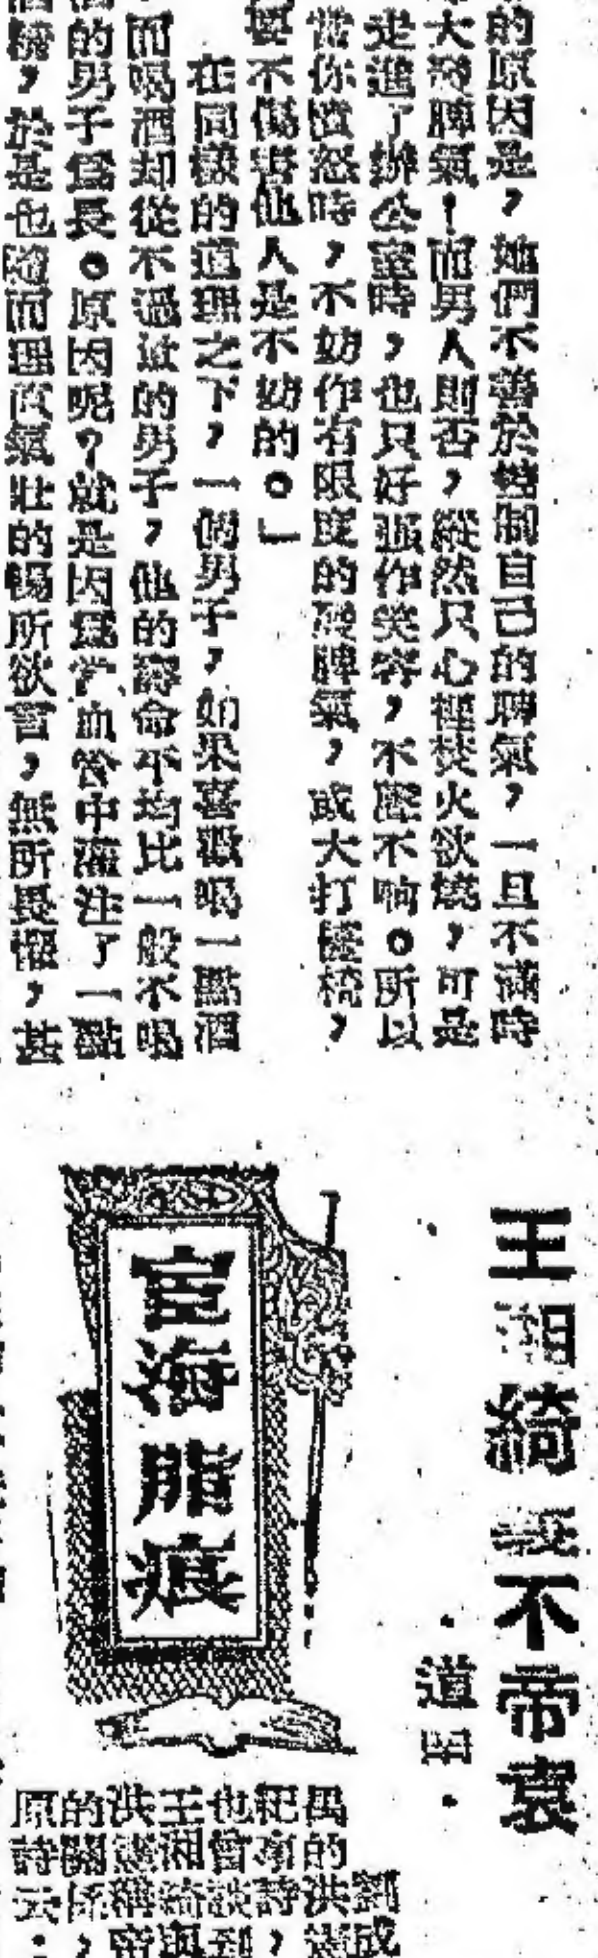 的原因是，她們不善於控制自己的脾氣，一旦不滿時
大發脾氣！而男人則否，縱然只心裡焚火欲燒，可是
走進了辦公室時，也只好強作笑容，不聲不响。所以
當你憤怒時，不妨作有限度的發脾氣，或大打檯椅，
要不傷害他人是不妨的。」
在同樣的道理之下，一個男子，如果喜歡喝一點酒
而喝酒却從不過量的男子，他的壽命平均比一般不喝
的男子為長。原因呢？就是因為當血管中灌注了一點
，於是也隨而理直氣壯的暢所欲言，無所畏懼，甚
王湘綺義不帝袁
·道四·
宦海脂痕
劉成
禺的洪憲
紀事詩，
也曾談到
王湘綺與
洪憲稱帝
的關係，
原詩云：